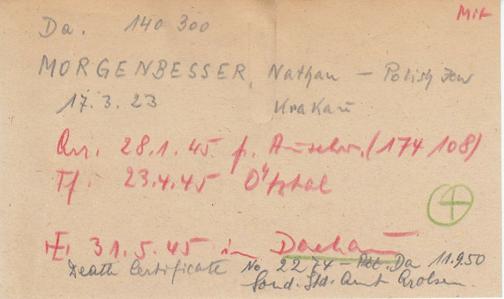 Mit
Da. 140 300
MORGENBESSER, Nathan – Polish Jew
17.3.23 Krakau
Arr. 28.1.45 f. Auschw. (174 108)
Tf. 23.4.45 Ötztal
31.5.45 in Dachau
Death Certificate No 2274 – Da 11.9.50
Sond. Std. Amt Arolsen